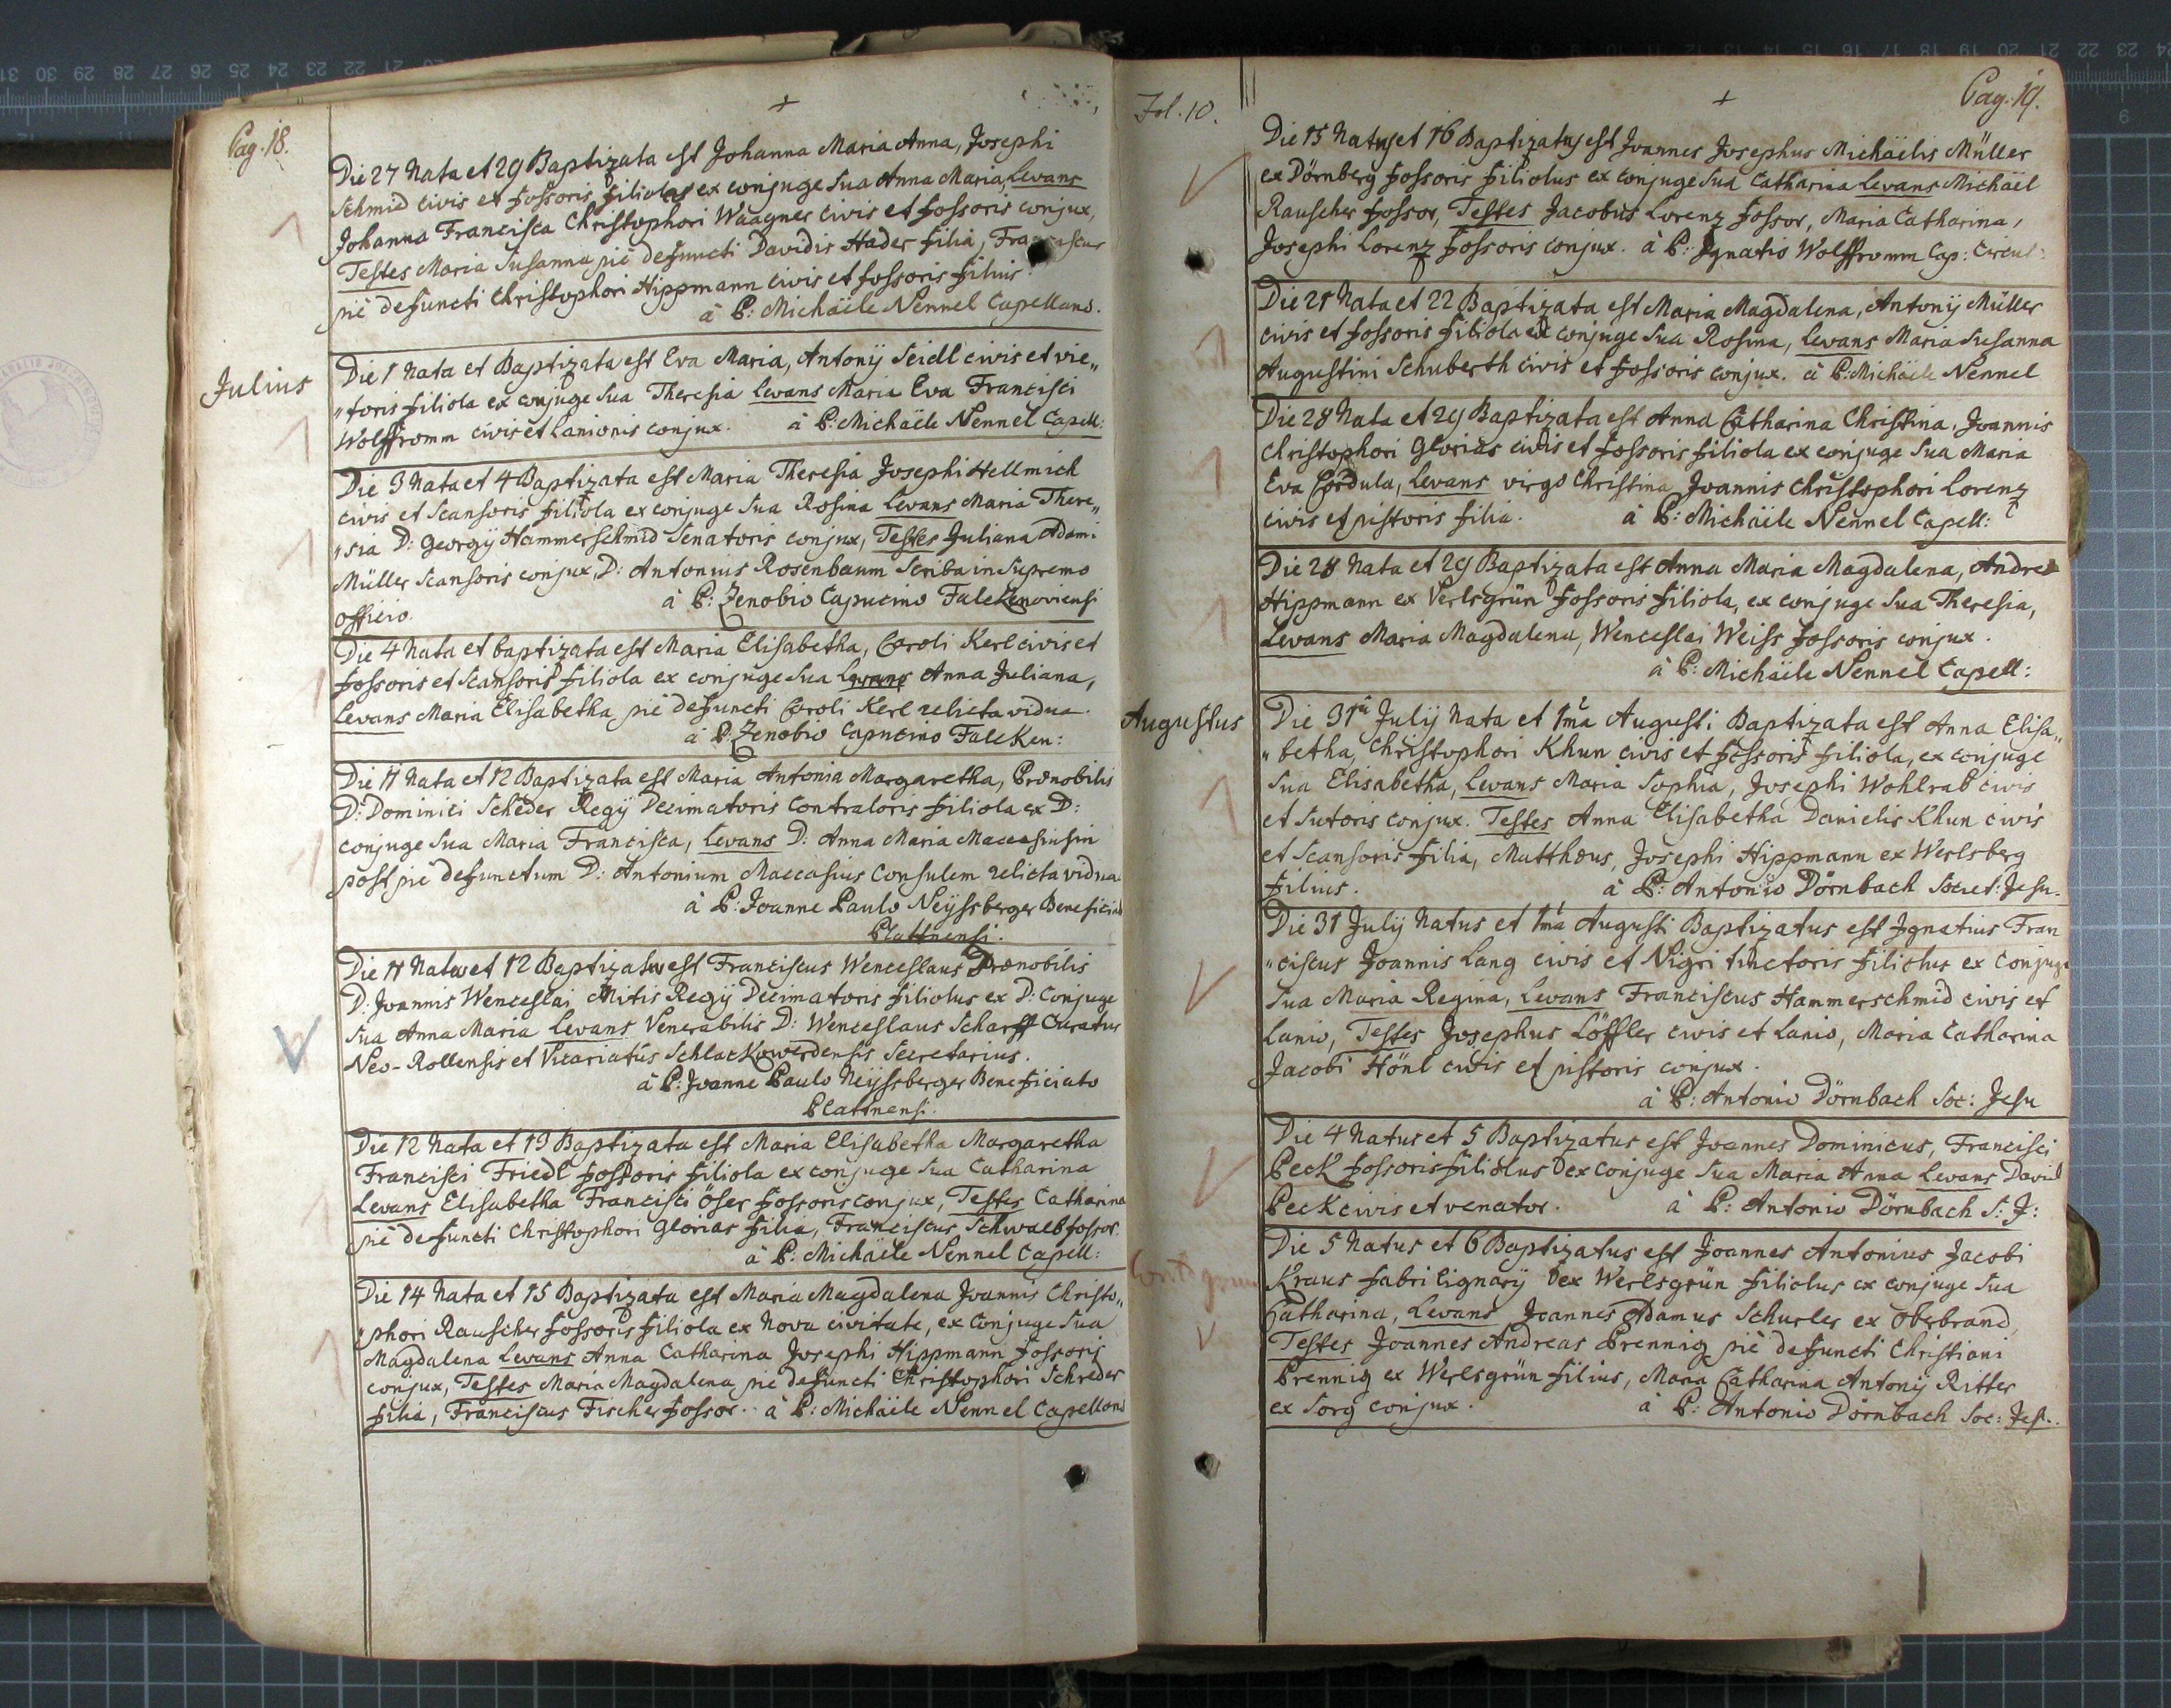 Pag. 18.
Die 27 Nata et 29 Baptizata est Johanna Maria Anna, Josephi
Schmid civis et fossoris filiola ex conjuge sua Anna Maria, Levans
Johanna Francisca Christophori Waagner civis et fossoris conjux,
Testes Maria Susanna piè defuncti Davidis Hader filia,
piè defuncti Christophori Hippmann civis et fossoris filius.
à P: Michäele Nennel Capellano.
Julius
Die 1 Nata et Baptizata est Eva Maria, Antonij Seidl civis et vie„
„toris filiola ex conjuge sua Theresia Levans Maria Eva Francisci
Wolffromm civis et Lanionis conjux. à P: Michäele Nennel Capell:
Die 3 Nata et 4 Baptizata est Maria Theresia Josephi Hellmich
civis et Scansoris filiola ex conjuge sua Rosina Levans Maria There„
„sia D: Georgij Hammerschmid Senatoris conjux, Testes Juliana Adami
Müller Scansoris conjux, D: Antonius Rosenbaum Scriba in Supremo
officio. à P: Zenobio Capucino Falckenoviensi
Die 4 Nata et baptizata est Maria Elisabetha, Caroli Kerl civis et
fossoris et Scansoris filiola ex conjuge sua Levans Anna Juliana,
Levans Maria Elisabetha piè defuncti Caroli Kerl relicta vidua.
à P. Zenobio Capucino Falcken:
Die 11 Nata et 12 Baptizata est Maria Antonia Margaretha, Prænobilis
D: Dominici Scheder Regij Decimatoris Contraloris filiola ex D:
conjuge sua Maria Francisca, Levans D: Anna Maria Maccasiusin
post piè defunctum D: Antonium Maccasius Consulem relicta vidua.
à P: Joanne Paulo Neijssberger
Plattnensi.
Die 11 Natus et 12 Baptizatus est Franciscus Wenceslaus Prænobilis
D: Joannis Wenceslai Mitis Regij Decimatoris filiolus ex D: Conjuge
sua Anna Maria Levans Venerabilis D: Wenceslaus Scharff Curatus
Neo-Rollensis et Vicariatûs Schlackowerdensis Secretarius.
à P: Joanne Paulo Neijssberger Beneficiato
Plattnensi.
Die 12 Nata et 13 Baptizata est Maria Elisabetha Margaretha
Francisci Friedl fossoris filiola ex conjuge sua Catharina
Levans Elisabetha Francisci Öser fossoris conjux, Testes Catharina
piè defuncti Christophori Glorias filia, Franciscus Schwalb fossor.
à P: Michäele Nennel Capell:
Die 14 Nata et 15 Baptizata est Maria Magdalena Joannis Christo„
„phori Rauscher fossoris filiola ex Nova civitate, ex Conjuge sua
Magdalena Levans Anna Catharina Josephi Hippmann fossoris
conjux, Testes Maria Magdalena piè defuncti Christophori Schreder
filia, Franciscus Fischer fossor. à P: Michäele Nennel Capellano
Fol. 10.
Pag. 19.
Die 15 Natus et 16 Baptizatus est Joannes Josephus Michäelis Müller
ex Dörnberg fossoris filiolus ex conjuge sua Catharina Levans Michäel
Rauscher fossor, Testes Jacobus Lorenz fossor, Maria Catharina,
Josephi Lorenz fossoris conjux. à P: Ignatio Wolffromm Cap:
Die 21 Nata et 22 Baptizata est Maria Magdalena, Antonij Müller
civis et fossoris filiola ex conjuge sua Rosina, Levans Maria Susanna
Augustini Schuberth civis et fossoris conjux. à P: Michäele Nennel
Die 28 Nata et 29 Baptizata est Anna Catharina Christina, Joannis
Christophori Glorias civis et fossoris filiola ex conjuge sua Maria
Eva Cordula, Levans virgo Christina Joannis Christophori Lorenz
civis et pistoris filia. à P: Michäele Nennel Capell:
Die 28 Nata et 29 Baptizata est Anna Maria Magdalena, Andreæ
Hippmann ex Verlsgrün fossoris filiola, ex conjuge sua Theresia,
Levans Maria Magdalena, Wenceslai Weiss fossoris conjux.
à P: Michäele Nennel Capell:
Augustus
Die 31â Julij Nata et 1mâ Augusti Baptizata est Anna Elisa„
„betha, Christophori Khun civis et fossoris filiola, ex conjuge
sua Elisabetha, Levans Maria Sophia, Josephi Wohlrab civis
et sutoris conjux. Testes Anna Elisabetha Danielis Khun civis
et Scansoris filia, Matthæus, Josephi Hippmann ex Werlsberg
filius. à P: Antonio Dörnbach Societ: Jesu.
Die 31 Julij Natus et 1mâ Augusti Baptizatus est Ignatius Fran
„ciscus Joannis Lang civis et Nigri tinctoris filiolus ex Conjuge
sua Maria Regina, Levans Franciscus Hammerschmid civis et
Lanio, Testes Josephus Löffler civis et Lanio, Maria Catharina
Jacobi Hönl civis et pistoris conjux.
à P: Antonio Dörnbach Soc: Jesu
Die 4 Natus et 5 Baptizatus est Joannes Dominicus, Francisci
Peck fossoris filiolus ex conjuge sua Maria Anna Levans David
Peck civis et venator. à P: Antonio Dörnbach S: J:
Die 5 Natus et 6 Baptizatus est Joannes Antonius Jacobi
Kraus fabri lignarij ex Werlsgrün filiolus ex conjuge sua
Catharina, Levans Joannes Adamus Schurler ex Oberbrand,
Testes Joannes Andreas Prennig piè defuncti Christiani
Prennig ex Werlsgrün filius, Maria Catharina Antonij Ritter
ex Sorg conjux. à P: Antonio Dörnbach Soc: Jes.